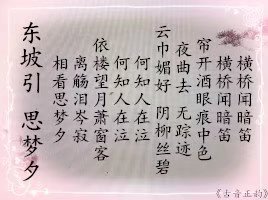 东坡引 思梦夕
相看思梦夕
离觞泪岑寂
依楼望月萧窗客
何知人在泣
何知人在泣
云巾媚好 阴柳丝碧
夜曲去 无踪迹
帘开酒眼痕中色
横桥闻暗笛
横桥闻暗笛
《古音正韵》